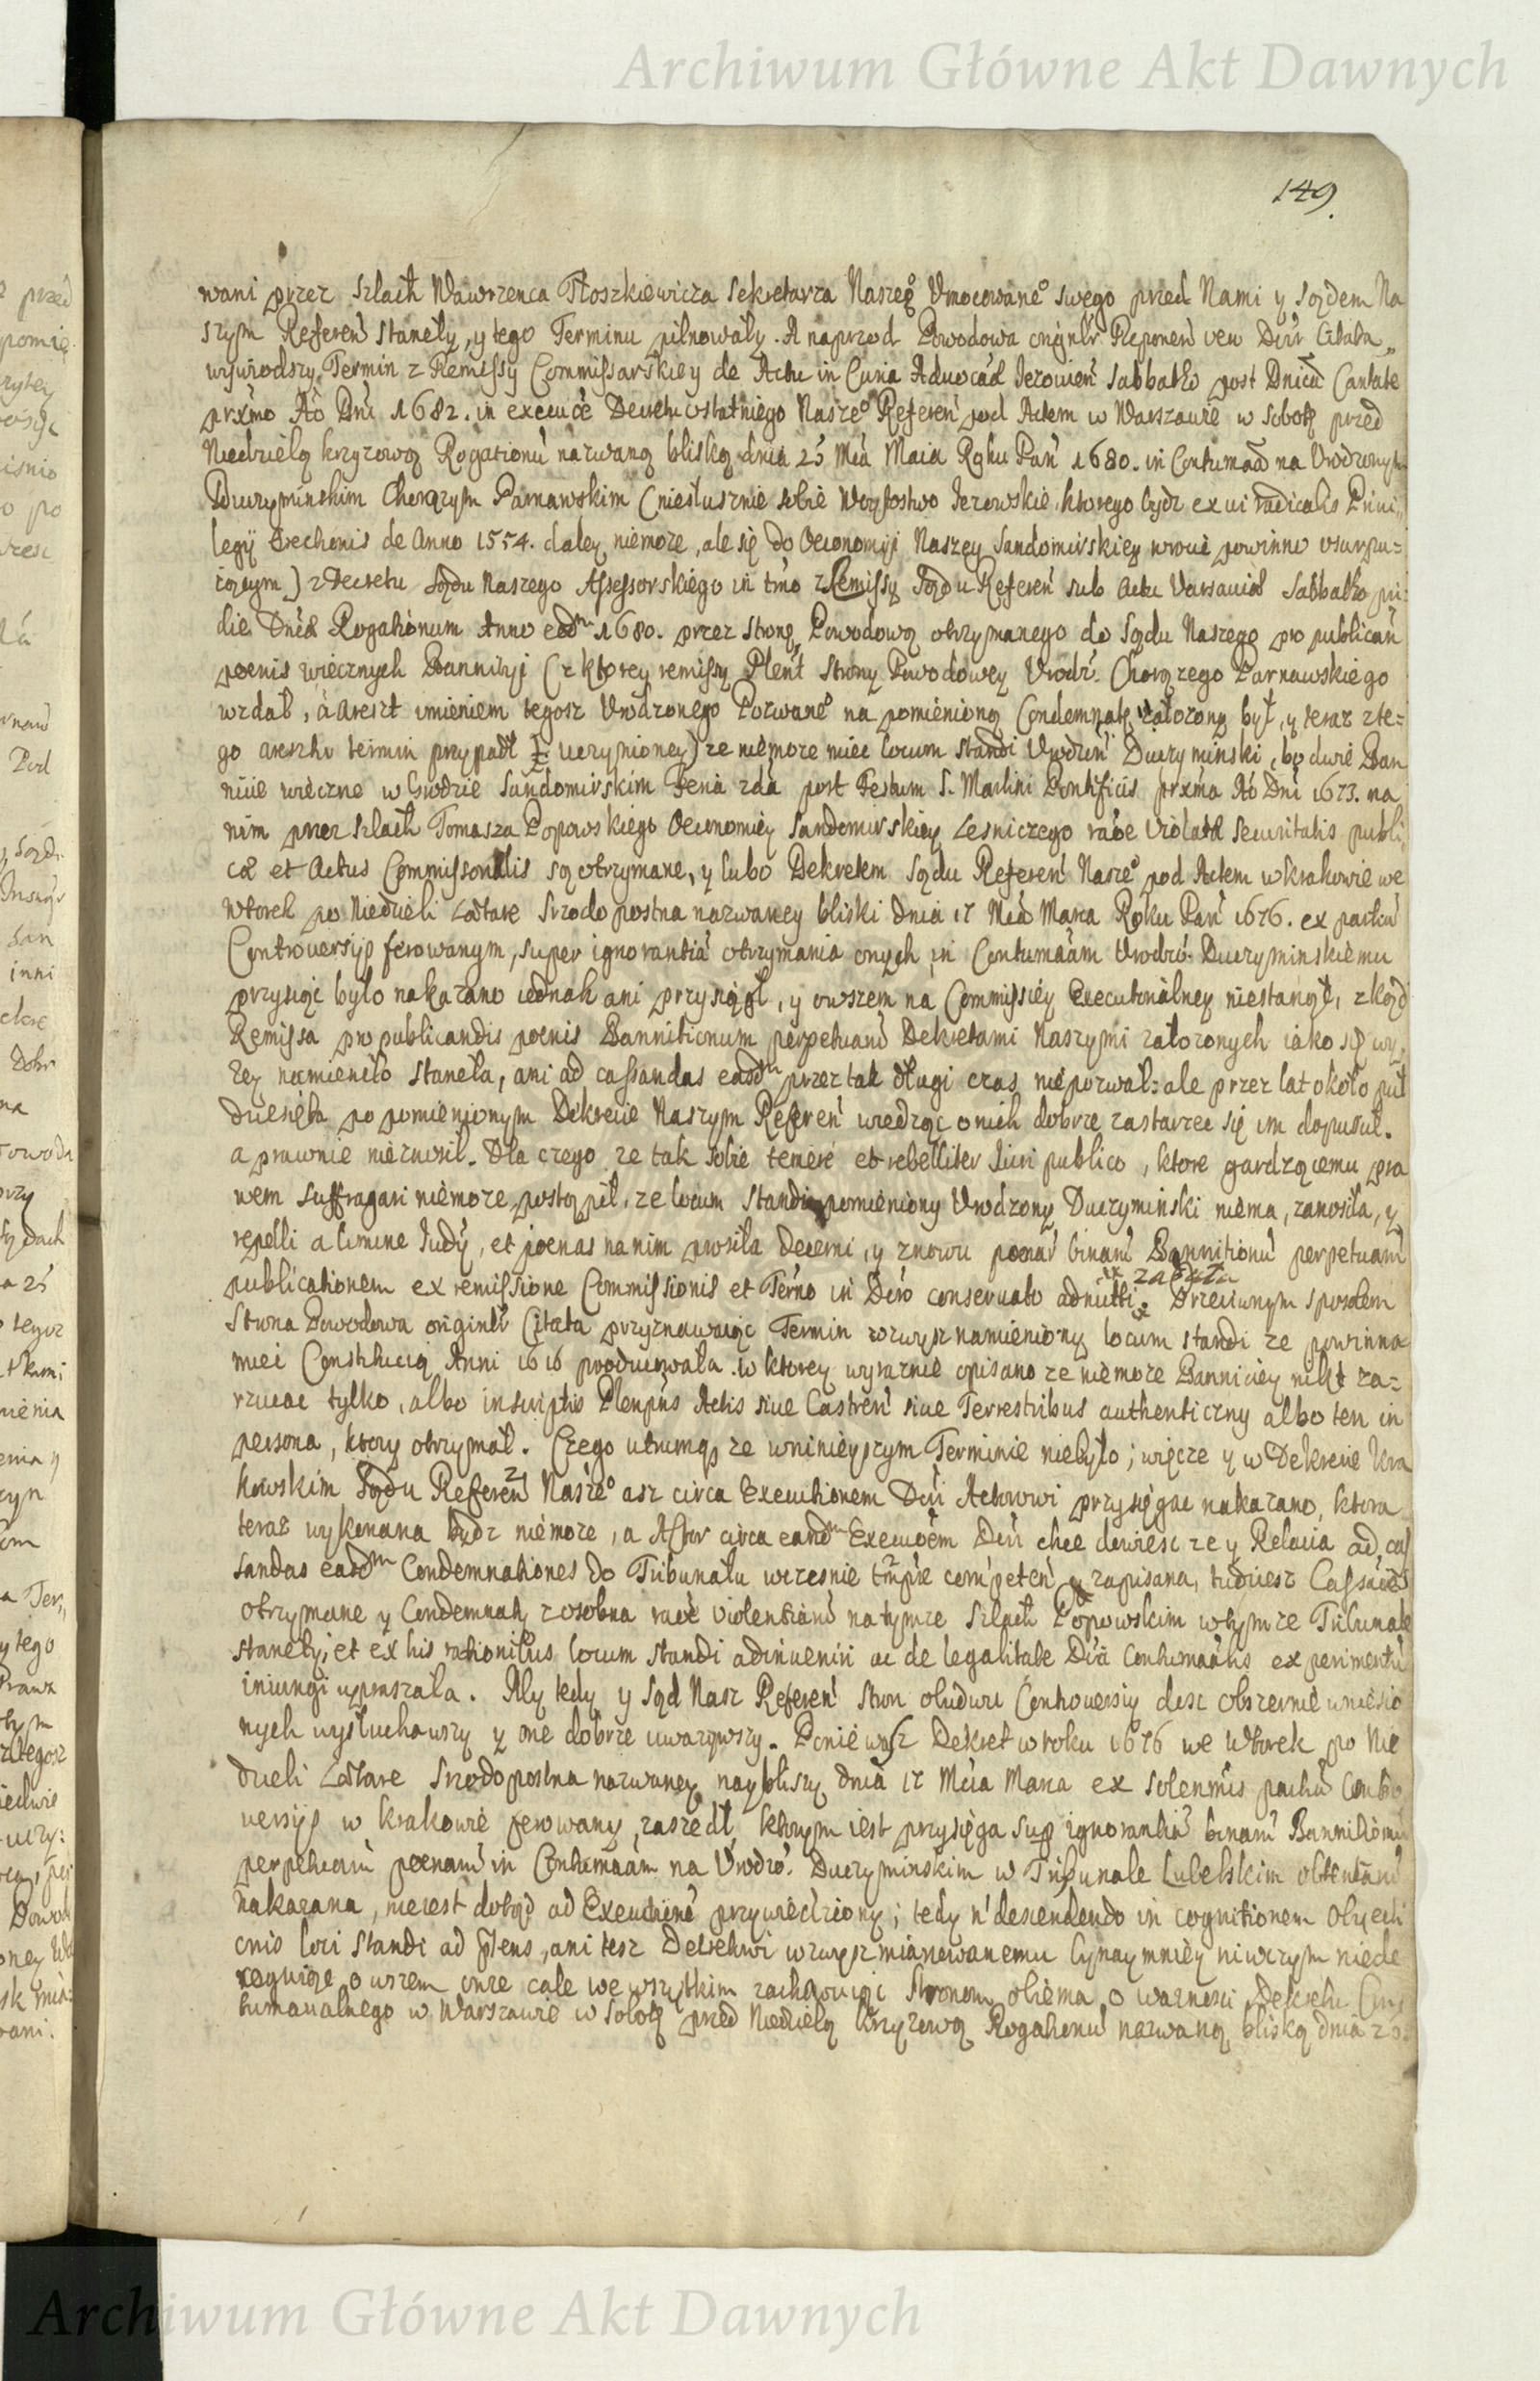 Archiwum Główne Akt Dawnych
149.
wani przez Szlach Wawrzenca Tłoszkiewicza Sekretarza Naszeg° Umocowane° swego przed Nami y Sądem Na
szym Referen stanęły, y tego Terminu pilnowały. A naprzod Powodowa originlr Reponen veu Citata
wywiodszy Termin z Remissy Commissarskiey de Actu in Curia Advocal Jezowien Sabbatho post Dnica Cantate
prxmo Ao Dni 1682. in execuce Decretu ostatniego Nasze° Referen pod Actem w Warszawie w Sobotę przed
Niedzielą krzyzową Rogationu nazwaną bliską dnia 25 Mca Maia Roku Pań 1680. in Contumac na Urodzonym
Duczyminskim Chorązym Parnawskim (niesłusznie sobie Woytostwo Jezowskie, ktorego bydz ex vi radicalis Privi
legÿ Zechonis de Anno 1554. daley niemoze, ale się do Oeconomÿi Naszey Sandomirskiey wrocić powinno usurpu=
iącym) z Decretu Sądu Naszego Assessorskiego in tmo z Remissy Sądu Referen sub Actu Varsaviæ Sabbatho pri
die Dnicæ Rogationum Anno eodm 1680. przez Stronę Powodową otrzymanego do Sądu Naszego pro publican
poenis wiecznych Bannitÿi (z ktorey remissy Plent Strony Powodowey Urodz. Chorązego Parnawskiego
wzdał, à areszt imieniem tegosz Urodzonego Pozwane° na pomienioną Condemnatę załozony był, y teraz zte=
go aresztu termin przypadł uczynioney) ze niemoze miec locum standi Urodzon Duczyminski, bo dwie Ban
nicie wieczne w Grodzie Sandomirskim Feria 2da post Festum S. Martini Pontificis prxma Ao Dni 1673. na
nim przez Szlach Tomasza Popowskiego Oeconomiey Sandomirskiey Lesniczego raõe violatæ Securitatis publi
cæ et Actus Commissorialis są otrzymane, y lubo Dekretem Sądu Referen Nasze° pod Actem w Krakowie we
Wtorek po Niedzieli Lætare Srzodopostna nazwaney bliski dnia 17 Mca Marca Roku Pań 1676. ex partiu
Controversÿs ferowanym, super ignorantia otrzymania onych in Contumaciam Urodzo. Duczyminskiemu
przysiąc było nakazano iednak ani przysiągł, y owszem na Commissiey Executorialney niestanął, zkąd
Remissa pro publicandis poenis Bannitionum perpetuaru Dekretami Naszymi załozonych iako się wy
zey namieniło stanęła, ani ad cassandas easdm przez tak długi czas niepozwał: ale przez lat około puł
dziesięta po pomienionym Dekrecie Naszym Referen wiedząc o nich dobrze zastarzec się im dopuscił.
a prawnie nieznosił. Dla czego ze tak sobie temere et rebelliter Juri publico, ktore gardzącemu pra
wem suffragari niemoze postąpił, ze locum Standi pomieniony Urodzony Duczyminski niema, zanosiła, y
repelli a limine Judÿ, et poenas na nim prosiła decerni, y znowu poenar binaru Bannitionu perpetuaru
publicationem ex remissione Commissionis et Termo in Dero conservato admitti. Przeciwnym sposobem
Strona Powodowa originlr Citata przyznawaiąc Termin wzwysz namieniony locum standi ze powinna
miec Constitucią Anni 1616 producowała. w ktorey wyraznie opisano ze niemoze Banniciey nikt za=
rzucac tylko, albo inscriptis Plenptus Actis siue Castren siue Terrestribus authenticzny albo ten in
persona, ktory otrzymał. Czego utrumq ze wninieyszym Terminie niebyło; więcze y w Dekrecie kra
kowskim Sądu Referen Nasze° asz circa Executionem Dcti Actorowi przysięgac nakazano, ktora
teraz wykonana bydz niemoze, a Actor circa eandm Execuoem Dcti chce dowiesc ze y Relacia ad cas
sandas easdm Condemnationes do Tribunału wczesnie tmpre competen zapisana, tudziesz Cassacie
otrzymane y Condemnaty zosobna raõe violentiaru na tymze Szlach Popowskim w tymze Tribunale
stanęły, et ex his rationibus locum standi adinveniri ac de legalitate Dcti Contumacialis experimentu
iniungi upraszała. My tedy y Sąd Nasz Referen Stron oboidwu Controversiy dosc obszernie wniesio
nych wysłuchawszy y one dobrze uwazywszy. Poniewasz Dekret w roku 1676 we Wtorek po Nie
dzieli Lætare Srzodopostna nazwaney nayblizszy dnia 17 Mca Marca ex solennis partiu Contro
versÿs w krakowie ferowany, zaszedł, ktorym iest przysięga sup ignorantia binaru Bannitionu
perpetuaru poenaru in Contumaciam na Urodzo. Duczyminskim w Tribunale Lubelskim obtentaru
nakazana, nieiest dotąd ad Executione przywiedziony; tedy n descendendo in cognitionem Obiecti
onis loci Standi ad præsens, ani tesz Dekretowi wzwysz mianowanemu bynaymniey niwczym niede
roguiąc owszem onze cale we wszytkim zachowuiąc Stronom obiema o waznosci Dekretu Con
tumacialnego w Warszawie w Sobotę przed Niedzielą krzyzową Rogationu nazwaną bliską dnia 25.
Archiwum Główne Akt Dawnych